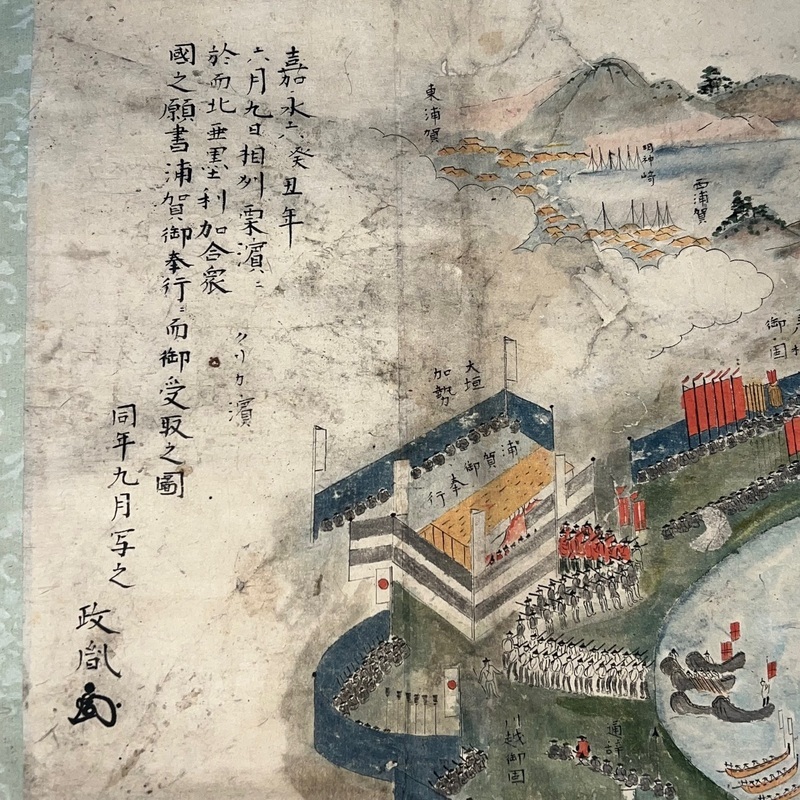 嘉永六癸丑年
六月九日相刕栗濱ニ
クリカ濱
於而北亜墨利加合衆
國之願書浦賀御奉行ニ而御受取之圖
同年九月写之
政胤
東浦賀
明神崎
西浦賀
御固
大垣
加勢
浦賀御奉行
川越御固
通詞